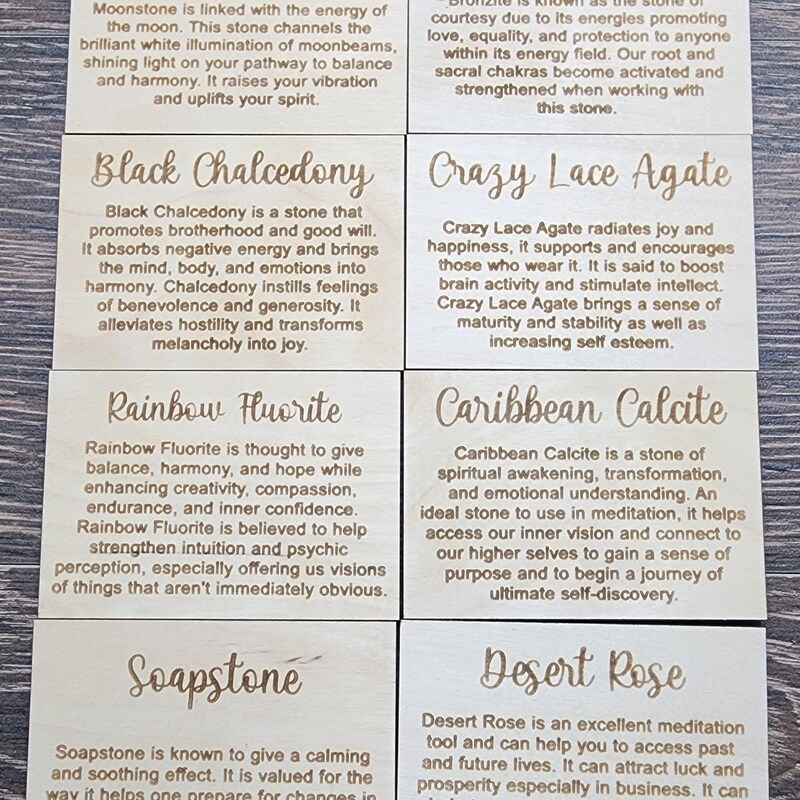 Moonstone is linked with the energy of
the moon. This stone channels the
brilliant white illumination of moonbeams,
shining light on your pathway to balance
and harmony. It raises your vibration
and uplifts your spirit.
Bronzite is known as the stone of
courtesy due to its energies promoting
love, equality, and protection to anyone
within its energy field. Our root and
sacral chakras become activated and
strengthened when working with
this stone.
Black Chalcedony
Black Chalcedony is a stone that
promotes brotherhood and good will.
It absorbs negative energy and brings
the mind, body, and emotions into
harmony. Chalcedony instills feelings
of benevolence and generosity. It
alleviates hostility and transforms
melancholy into joy.
Crazy Lace Agate
Crazy Lace Agate radiates joy and
happiness, it supports and encourages
those who wear it. It is said to boost
brain activity and stimulate intellect.
Crazy Lace Agate brings a sense of
maturity and stability as well as
increasing self esteem.
Rainbow Fluorite
Rainbow Fluorite is thought to give
balance, harmony, and hope while
enhancing creativity, compassion,
endurance, and inner confidence.
Rainbow Fluorite is believed to help
strengthen intuition and psychic
perception, especially offering us visions
of things that aren't immediately obvious.
Caribbean Calcite
Caribbean Calcite is a stone of
spiritual awakening, transformation,
and emotional understanding. An
ideal stone to use in meditation, it helps
access our inner vision and connect to
our higher selves to gain a sense of
purpose and to begin a journey of
ultimate self-discovery.
Soapstone
Soapstone is known to give a calming
and soothing effect. It is valued for the
way it helps one prepare for changes in
Desert Rose
Desert Rose is an excellent meditation
tool and can help you to access past
and future lives. It can attract luck and
prosperity especially in business. It can